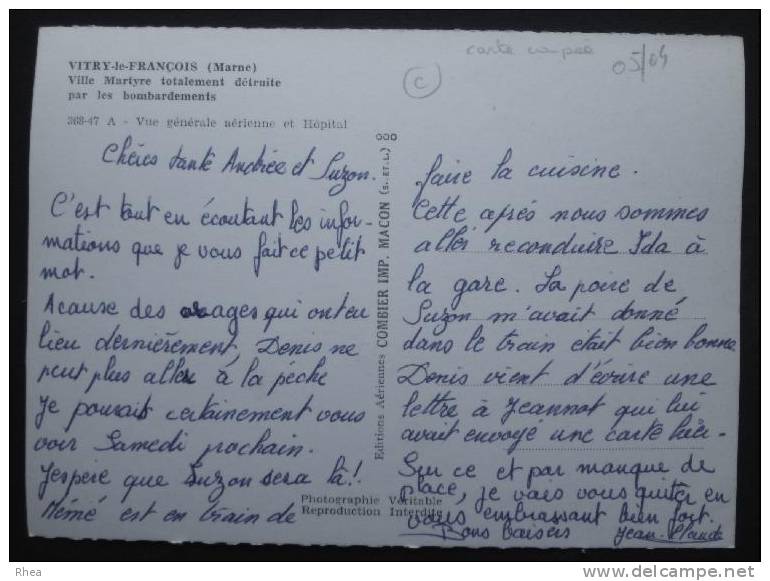 VITRY-le-FRANÇOIS (Marne)
Ville Martyre totalement détruite
par les bombardements
368-47 A - Vue générale aérienne et Hôpital
carte coupée
05/04
C
Chères tante Andrée et Suzon.
C'est tout en écoutant les infor-
mations que je vous fait ce petit
mot.
A cause des orages qui ont eu
lieu dernièrement, Denis ne
peut plus aller à la pêche
Je pourait certainement vous
voir Samedi prochain.
J'espère que Suzon sera là!
Mémé est en train de
Editions Aériennes COMBIER IMP. MACON (S.-ET-L.)
Photographie Véritable
Reproduction Interdite
faire la cuisine.
Cette après nous sommes
aller reconduire Ida à
la gare. La poire de
Suzon m'avait donné
dans le train était bien bonne
Denis vient d'écrire une
lettre à Jeannot qui lui
avait envoyé une carte hier.
Sur ce et par manque de
place, je vais vous quitter en
vous embrassant bien fort.
Bons baisers Jean-Claude
Rhea
http://www.delcampe.net